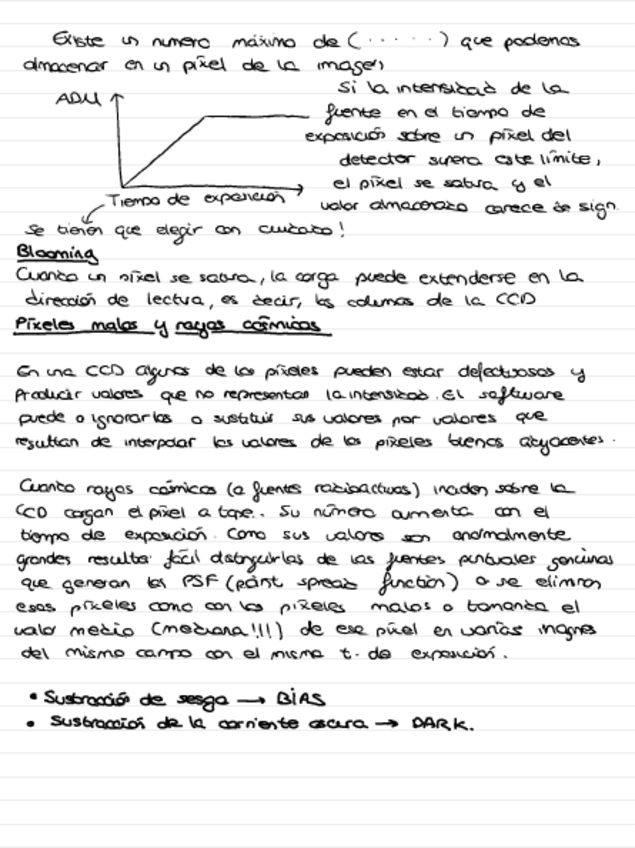 Existe un numero máximo de (.....) que podemos
almacenar en un píxel de la imagen
ADU
Tiempo de exposición
Si la intensidad de la
fuente en el tiempo de
exposición sobre un píxel del
detector supera este límite,
el píxel se satura y el
valor almacenado carece de sign.
Se tienen que elegir con cuidado!
Blooming
Cuando un píxel se satura, la carga puede extenderse en la
dirección de lectura, es decir, las columas de la CCD
Píxeles malos y rayos cósmicos
En una CCD algunos de los píxeles pueden estar defectuosos y
Producir valores que no representan la intensidad. El software
puede o ignorarlos o sustituir sus valores por valores que
resultan de interpolar los valores de los píxeles buenos adyacentes.
Cuando rayos cósmicos (o fuentes radioactivas) inciden sobre la
CCD cargan el píxel a tope. Su número aumenta con el
tiempo de exposición. Como sus valores son anormalmente
grandes resulta fácil distinguirlas de las fuentes puntuales genuinas
que generan las PSF (point spread function) o se eliminan
esos píxeles como con los píxeles malos o tomando el
valor medio (mediana!!!) de ese píxel en varias imagnes
del mismo campo con el mismo t. de exposición.
• Sustracción de sesgo → BIAS
• Sustracción de la corriente oscura → DARK.